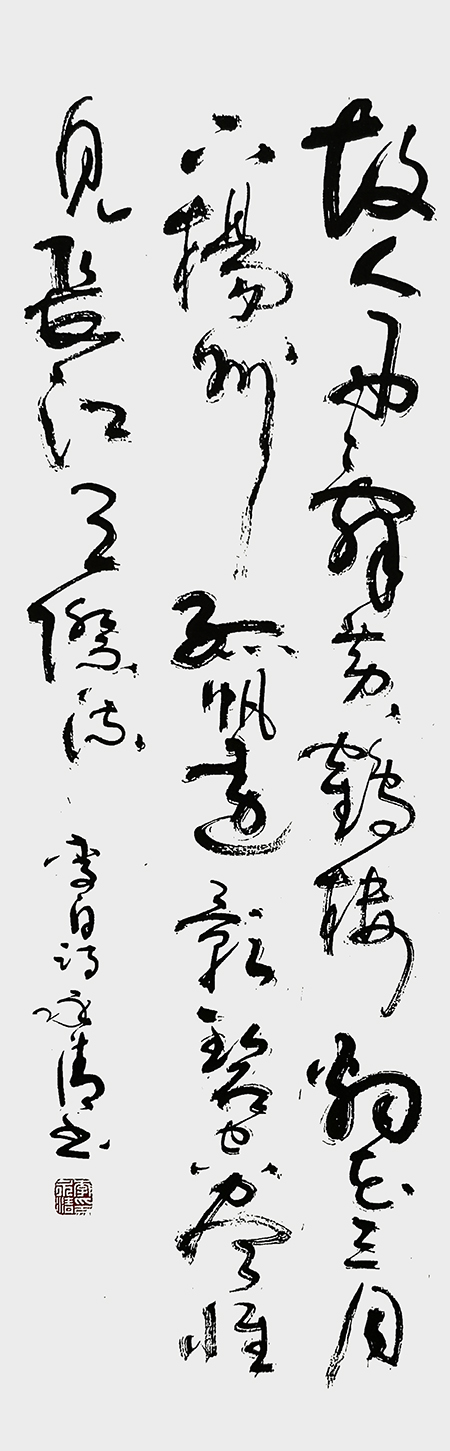 故人西辭黃鶴樓烟花三月
下楊州孤帆遠影碧空盡惟
見長江天際流
李白詩 清書